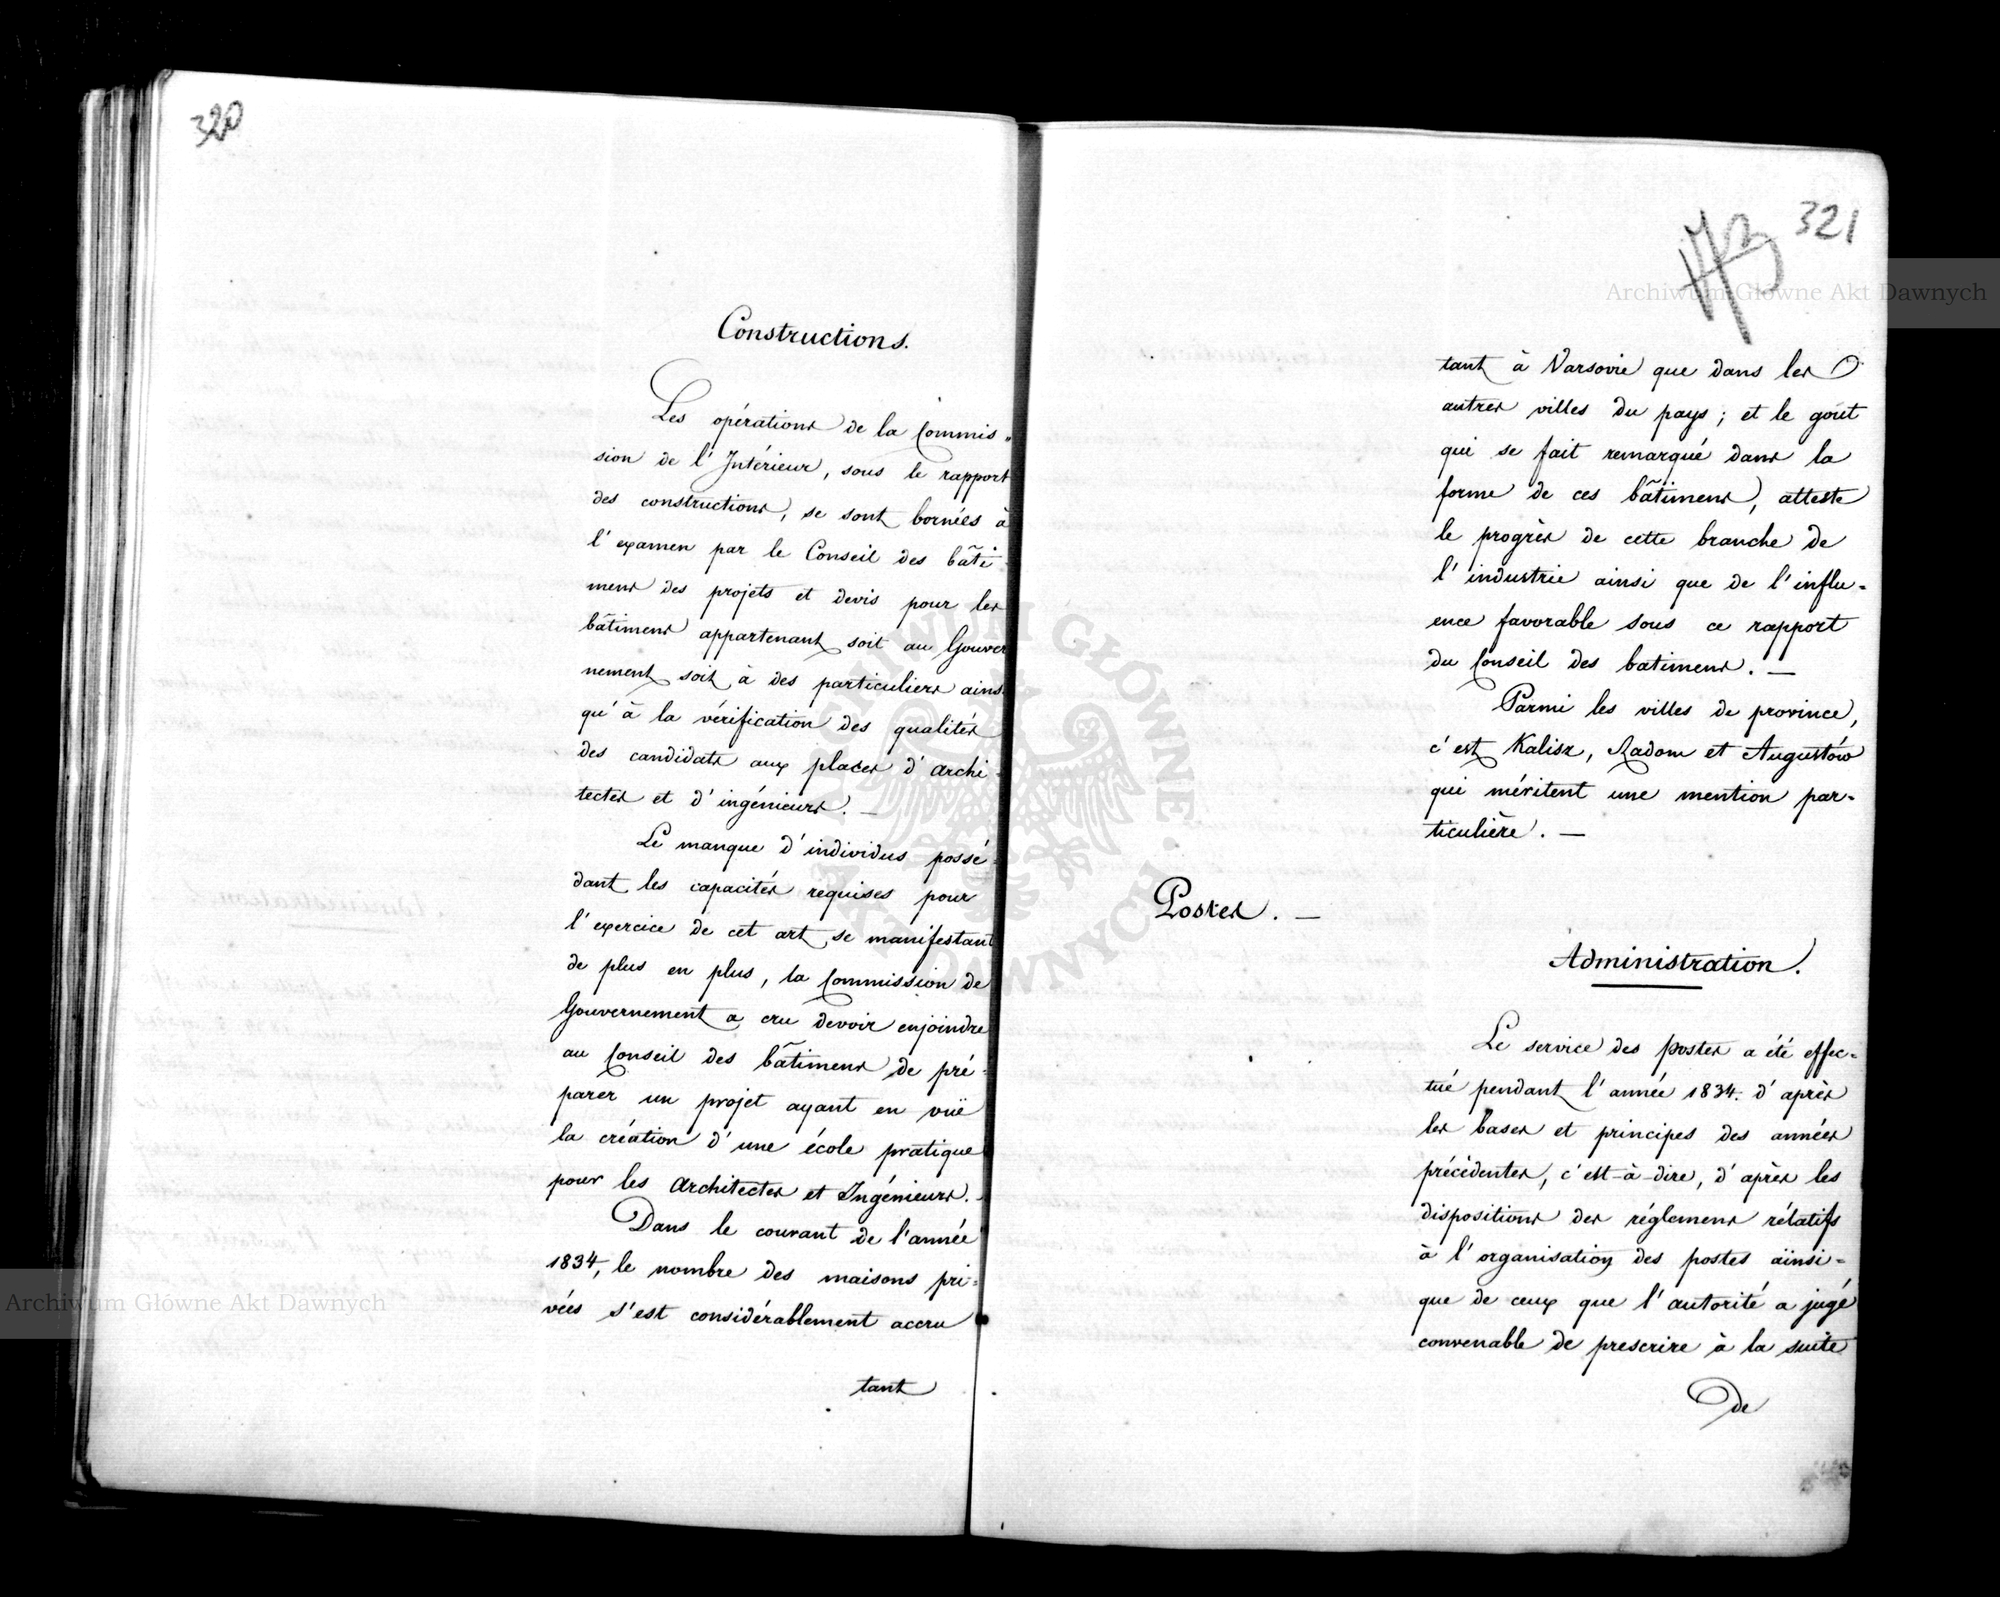 320
Constructions.
Les opérations de la Commis„
sion de l'Intérieur, sous le rapport
des constructions, se sont bornées à
l'examen par le Conseil des bâti
mens des projets et devis pour les
bâtimens appartenant soit au Gouver
nement soit à des particuliers ainsi
qu'à la vérification des qualités
des candidats aux places d'archi-
tectes et d'ingénieurs. —
Le manque d'individus possé-
dant les capacités requises pour
l'exercice de cet art, se manifestant
de plus en plus, la Commission de
Gouvernement a cru devoir enjoindre
au Conseil des bâtimens de pré-
parer un projet ayant en vuë
la création d'une école pratique
pour les Architectes et Ingénieurs. -
Dans le courant de l'année
1834, le nombre des maisons pri-
vées s'est considérablement accru
tant
321
173
tant à Varsovie que dans les
autres villes du pays; et le goût
qui se fait remarqué dans la
forme de ces bâtimens, atteste
le progrès de cette branche de
l'industrie ainsi que de l'influ-
ence favorable sous ce rapport
du Conseil des batimens. —
Parmi les villes de province,
c'est Kalisz, Radom et Augustów
qui méritent une mention par-
ticulière. —
Postes. —
Administration.
Le service des postes a été effec-
tué pendant l'année 1834. d'après
les bases et principes des années
précédentes, c'est-à-dire, d'après les
dispositions des réglemens rélatifs
à l'organisation des postes aïnsi-
que de ceux que l'autorité a jugé
convenable de prescrire à la suite
de
Archiwum Główne Akt Dawnych
Archiwum Główne Akt Dawnych
ARCHIWUM GŁÓWNE · AKT DAWNYCH ·